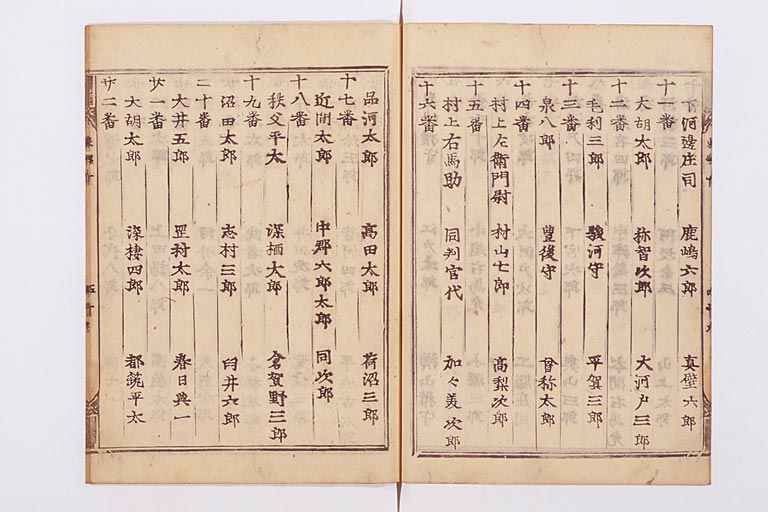 下河邊庄司　鹿嶋六郎　真壁六郎
十一番
大胡太郎　祢智次郎　大河戸三郎
十二番
毛利三郎　駿河守　平賀三郎
十三番
泉八郎　豊後守　曾祢太郎
十四番
村上左衛門尉　村山七郎　高梨次郎
十五番
村上右馬助　同判官代　加々美次郎
十六番
品河太郎　高田太郎　荷沼三郎
十七番
近間太郎　中郡六郎太郎　同次郎
十八番
秩父平太　深栖太郎　倉賀野三郎
十九番
沼田太郎　志村三郎　臼井六郎
二十番
大井五郎　罡村太郎　春日与一
廿一番
大胡太郎　深棲四郎　都筑平太
廿二番